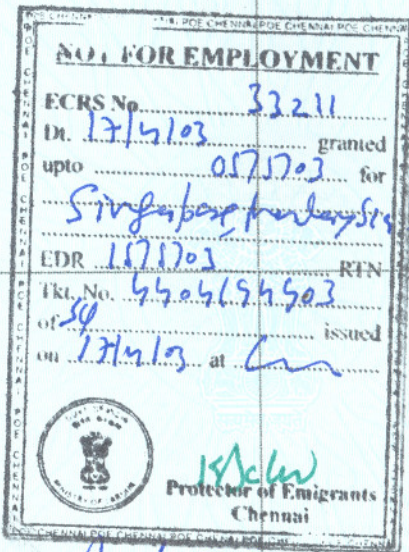 POE CHENNAI POE CHENNAI POE CHENNAI
NOT FOR EMPLOYMENT
ECRS No. 33211
Dt. 17/4/03 granted
upto 05/5/03 for
Singapore, Malaysia
EDR 15/5/03 RTN
Tkt. No. 4404194903
of SQ issued
on 17/4/03 at
Protector of Emigrants
Chennai